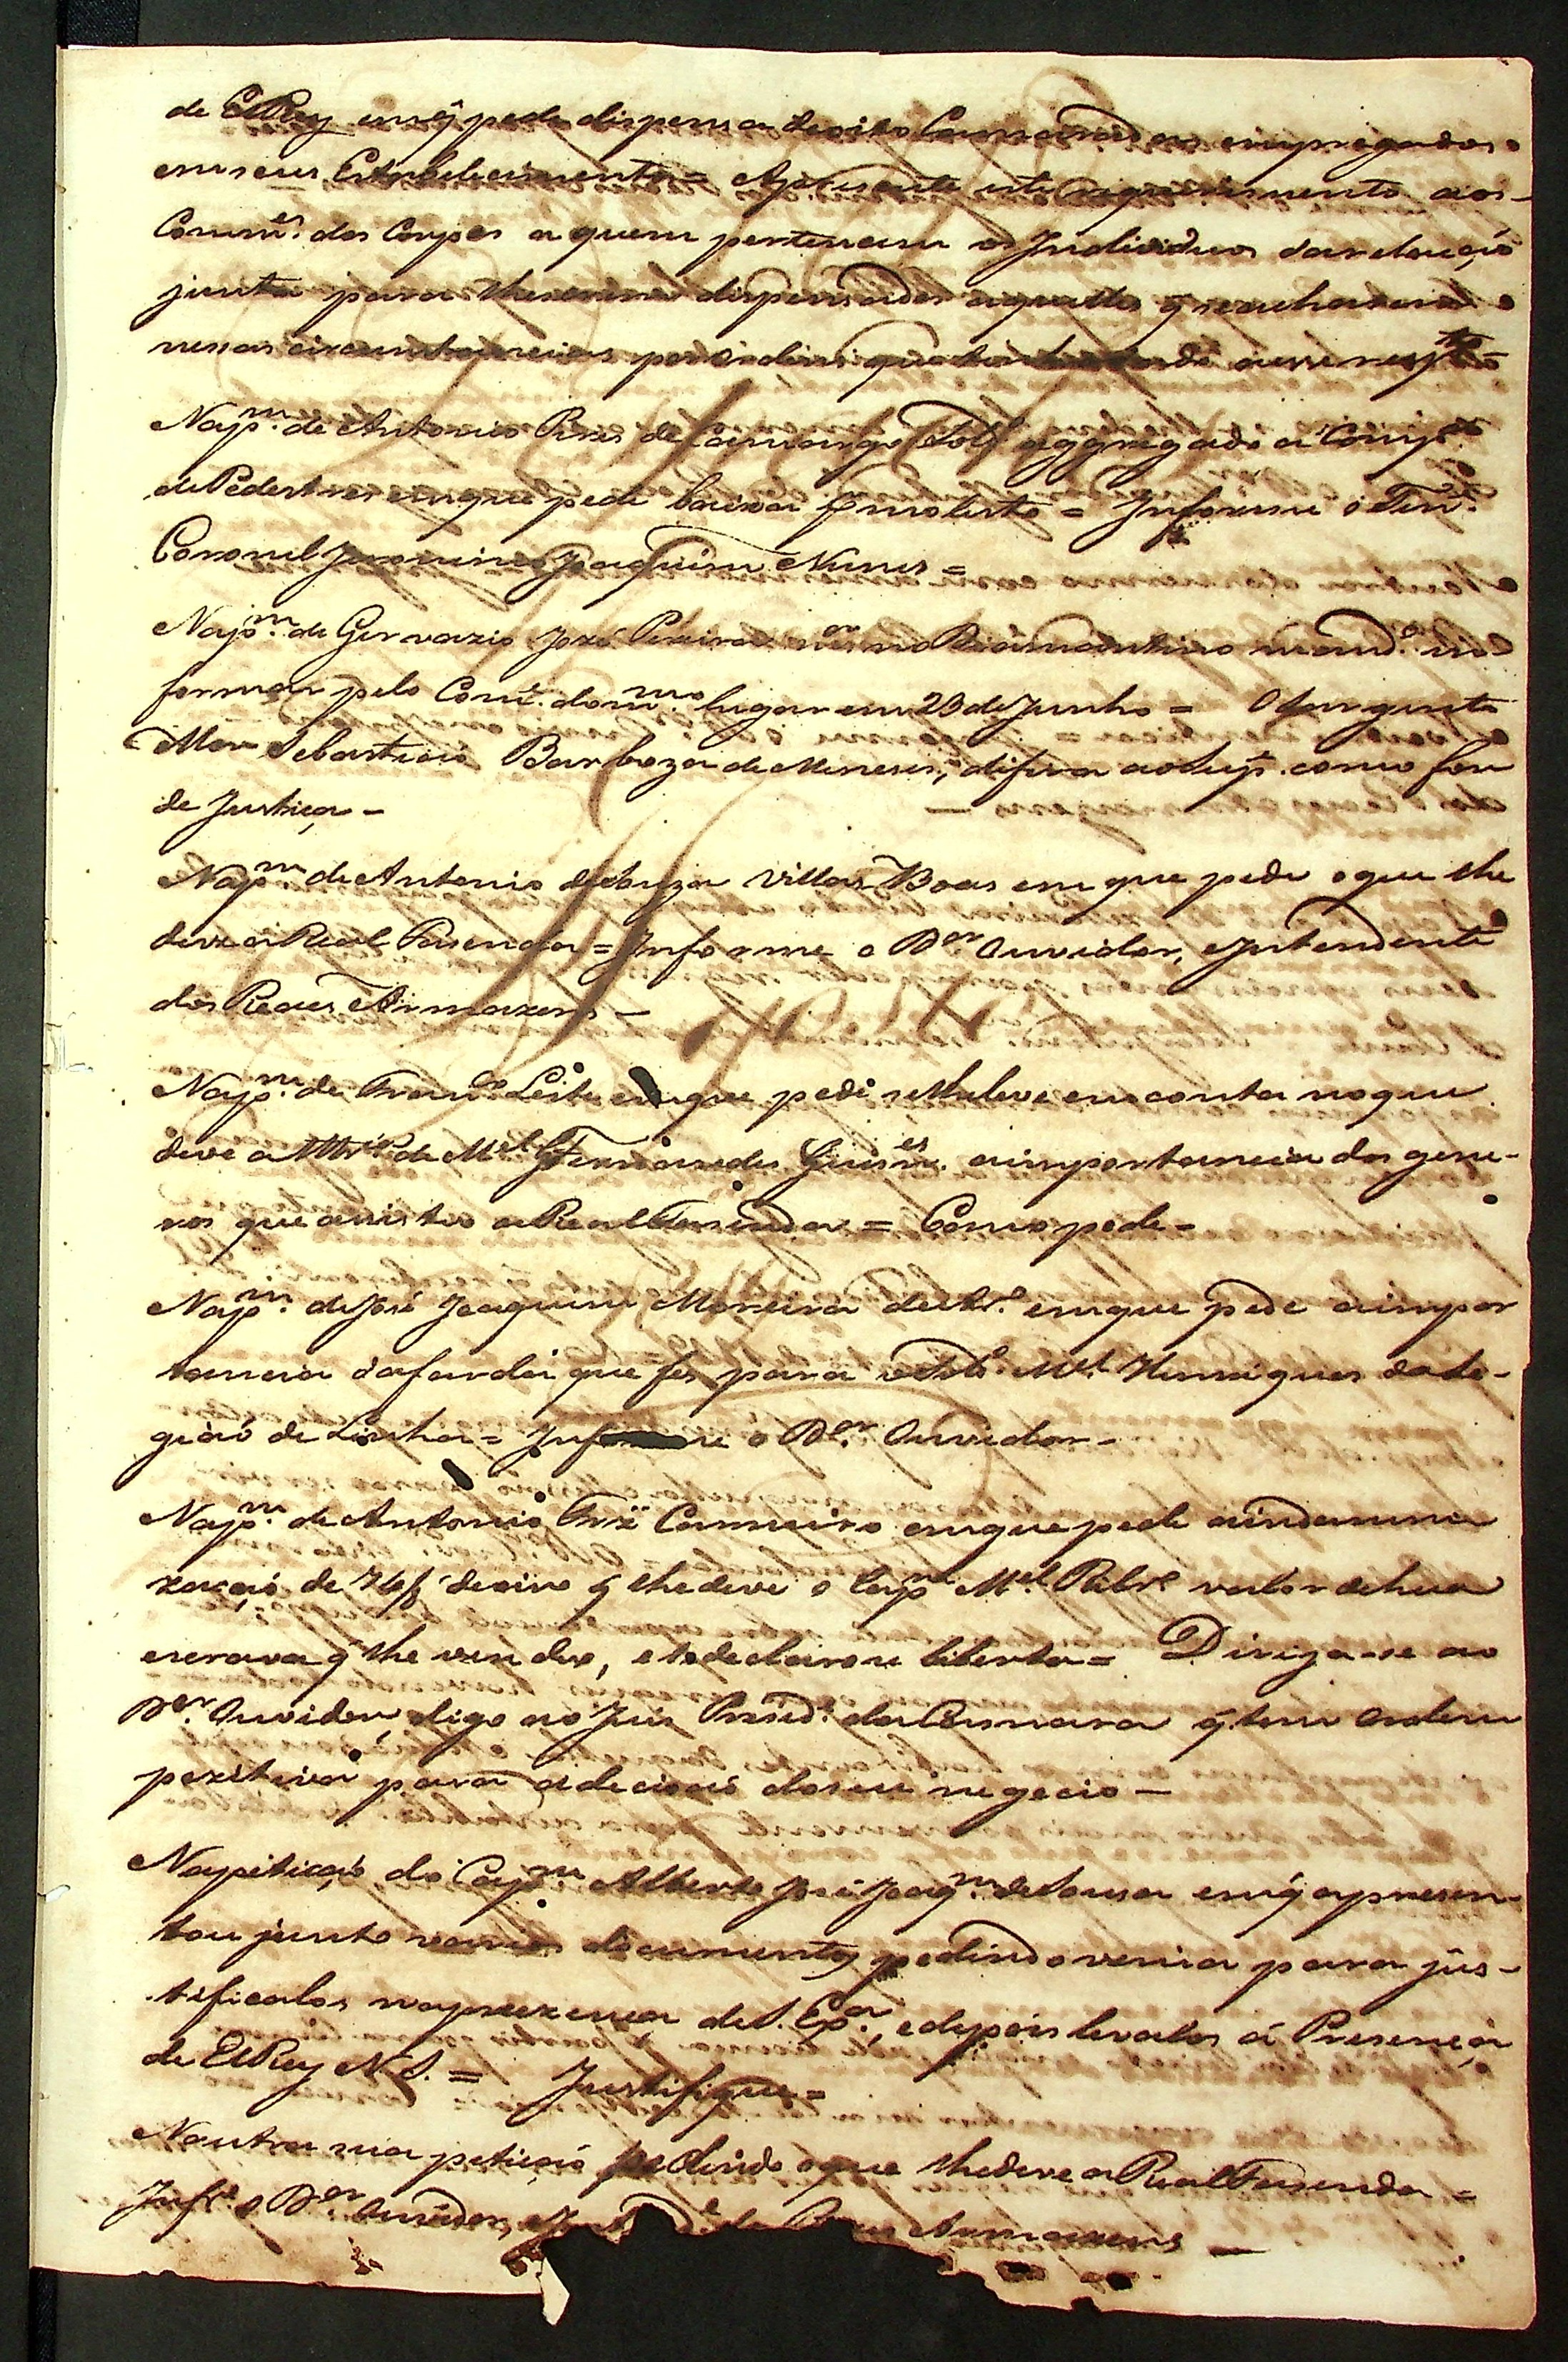 de ElRey em q̃ pede dispensa de oito Camaradas empregados
em seus Estabelecimentos = Apresente este requerimento aos
Comm.es dos Corpos a quem pertencem os Individuos da relação
junta para lhe serem dispensados aquelles q̃ se acharem
nessas circunstancias por ordem que tem dado a esse resp.to =
Na p.m de Antonio Pires de Camargo Sold.o aggregado a Comp.a
de Pedestres em que pede baixa p molesto = Informe o Ten.e
Coronel Jeronimo Joaquim Nunes =
Na p.m de Gervazio José Pereira m.or no Diamantino mand.o in
formar pelo Com.e do m.mo lugar em 23 de Junho = O Sargento
Mor Sebastiaõ Barboza de Meneses, difira ao Sup.e como for
de Justiça -
Na p.m de Antonio de Souza Villas Boas em que pede o que lhe
deve a Real Fasenda = Informe o D.or Ouvidor, e Intendente
dos Reaes Armazens -
Na p.m de Fran.co Leite em que pede se lhe leve em conta no que
deve a de M.el Fernandes Guim.es a importancia dos gene-
ros que assistio a Real Fasenda = Como pede -
Na p.m de José Joaquim Moreira de em que pede a impor
tancia da farda que fes para o Sold.o M.el Henriques da Le-
giaõ de Linha = Informe o D.or Ouvidor -
Na p.m de Antonio Carneiro em que pede a indamni
zaçaõ de de oiro q̃ lhe deve o Cap.m M.el Ribr.o valor de hua
escrava q̃ lhe vendeo, e se declarou liberta = Dirija-se ao
D.or Ouvidor, digo ao Juis Presid.e da Camara q̃ tem ordem
pozitiva para a decisaõ do seu negocio -
Na petiçaõ do Cap.m Alberto José Joaq.m de Sousa em q̃ apresen-
tou junto varios documentos pedindo venia para jus-
tificalos na prezença de S. Ex.a, e depois levalos á Presença
de ElRey N. S. = Justifique =
N'outra sua petiçaõ pedindo o que lhe deve a Real Fasenda =
Inf.e o D.or Ouvidor, e Armazens -